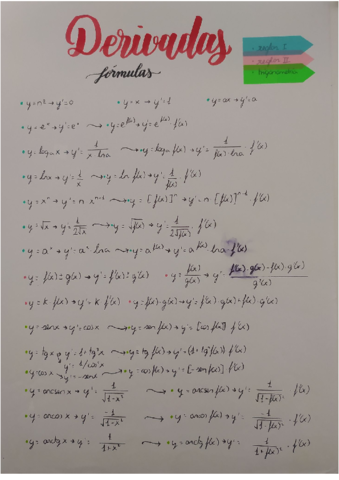 Derivadas
fórmulas
• reglas I
• reglas II
• trigonometría
• y=nº → y'=0 • y=x → y'=1 • y=ax → y'=a
• y=eˣ → y'=eˣ ⟶ • y=e^f(x) → y'=e^f(x) · f'(x)
• y=logₐx → y'= 1/(x · lna) ⟶ • y=logₐ f(x) → y'= 1/(f(x) · lna) · f'(x)
• y=lnx → y'= 1/x ⟶ • y=ln f(x) → y'= 1/f(x) · f'(x)
• y=xⁿ → y'=n · xⁿ⁻¹ ⟶ • y=[f(x)]ⁿ → y'=n · [f(x)]ⁿ⁻¹ · f'(x)
• y=√x → y'= 1/(2√x) ⟶ • y=√f(x) → y'= 1/(2√f(x)) · f'(x)
• y=aˣ → y'=aˣ · lna ⟶ • y=a^f(x) → y'=a^f(x) · lna · f'(x)
• y= f(x)±g(x) → y'= f'(x)±g'(x) • y= f(x)/g(x) → y'= (f'(x)·g(x)-f(x)·g'(x))/g²(x)
• y=k·f(x) → y'=k·f'(x) • y=f(x)·g(x) → y'=f'(x)·g(x)+f(x)·g'(x)
• y=senx → y'=cosx ⟶ • y=sen f(x) → y'=[cos f(x)]·f'(x)
• y=tgx → y'=1+tg²x ⟶ • y=tg f(x) → y'=(1+tg²f(x))·f'(x)
y'=1/cos²x
• y=cosx → y'=-senx ⟶ • y=cos f(x) → y'=[-sen f(x)]·f'(x)
• y=arcsenx → y'= 1/√(1-x²) ⟶ • y=arcsen f(x) → y'= 1/√(1-f(x)²) · f'(x)
• y=arccosx → y'= -1/√(1-x²) ⟶ • y=arccos f(x) → y'= -1/√(1-f(x)²) · f'(x)
• y=arctgx → y'= 1/(1+x²) ⟶ • y=arctg f(x) → y'= 1/(1+f(x)²) · f'(x)